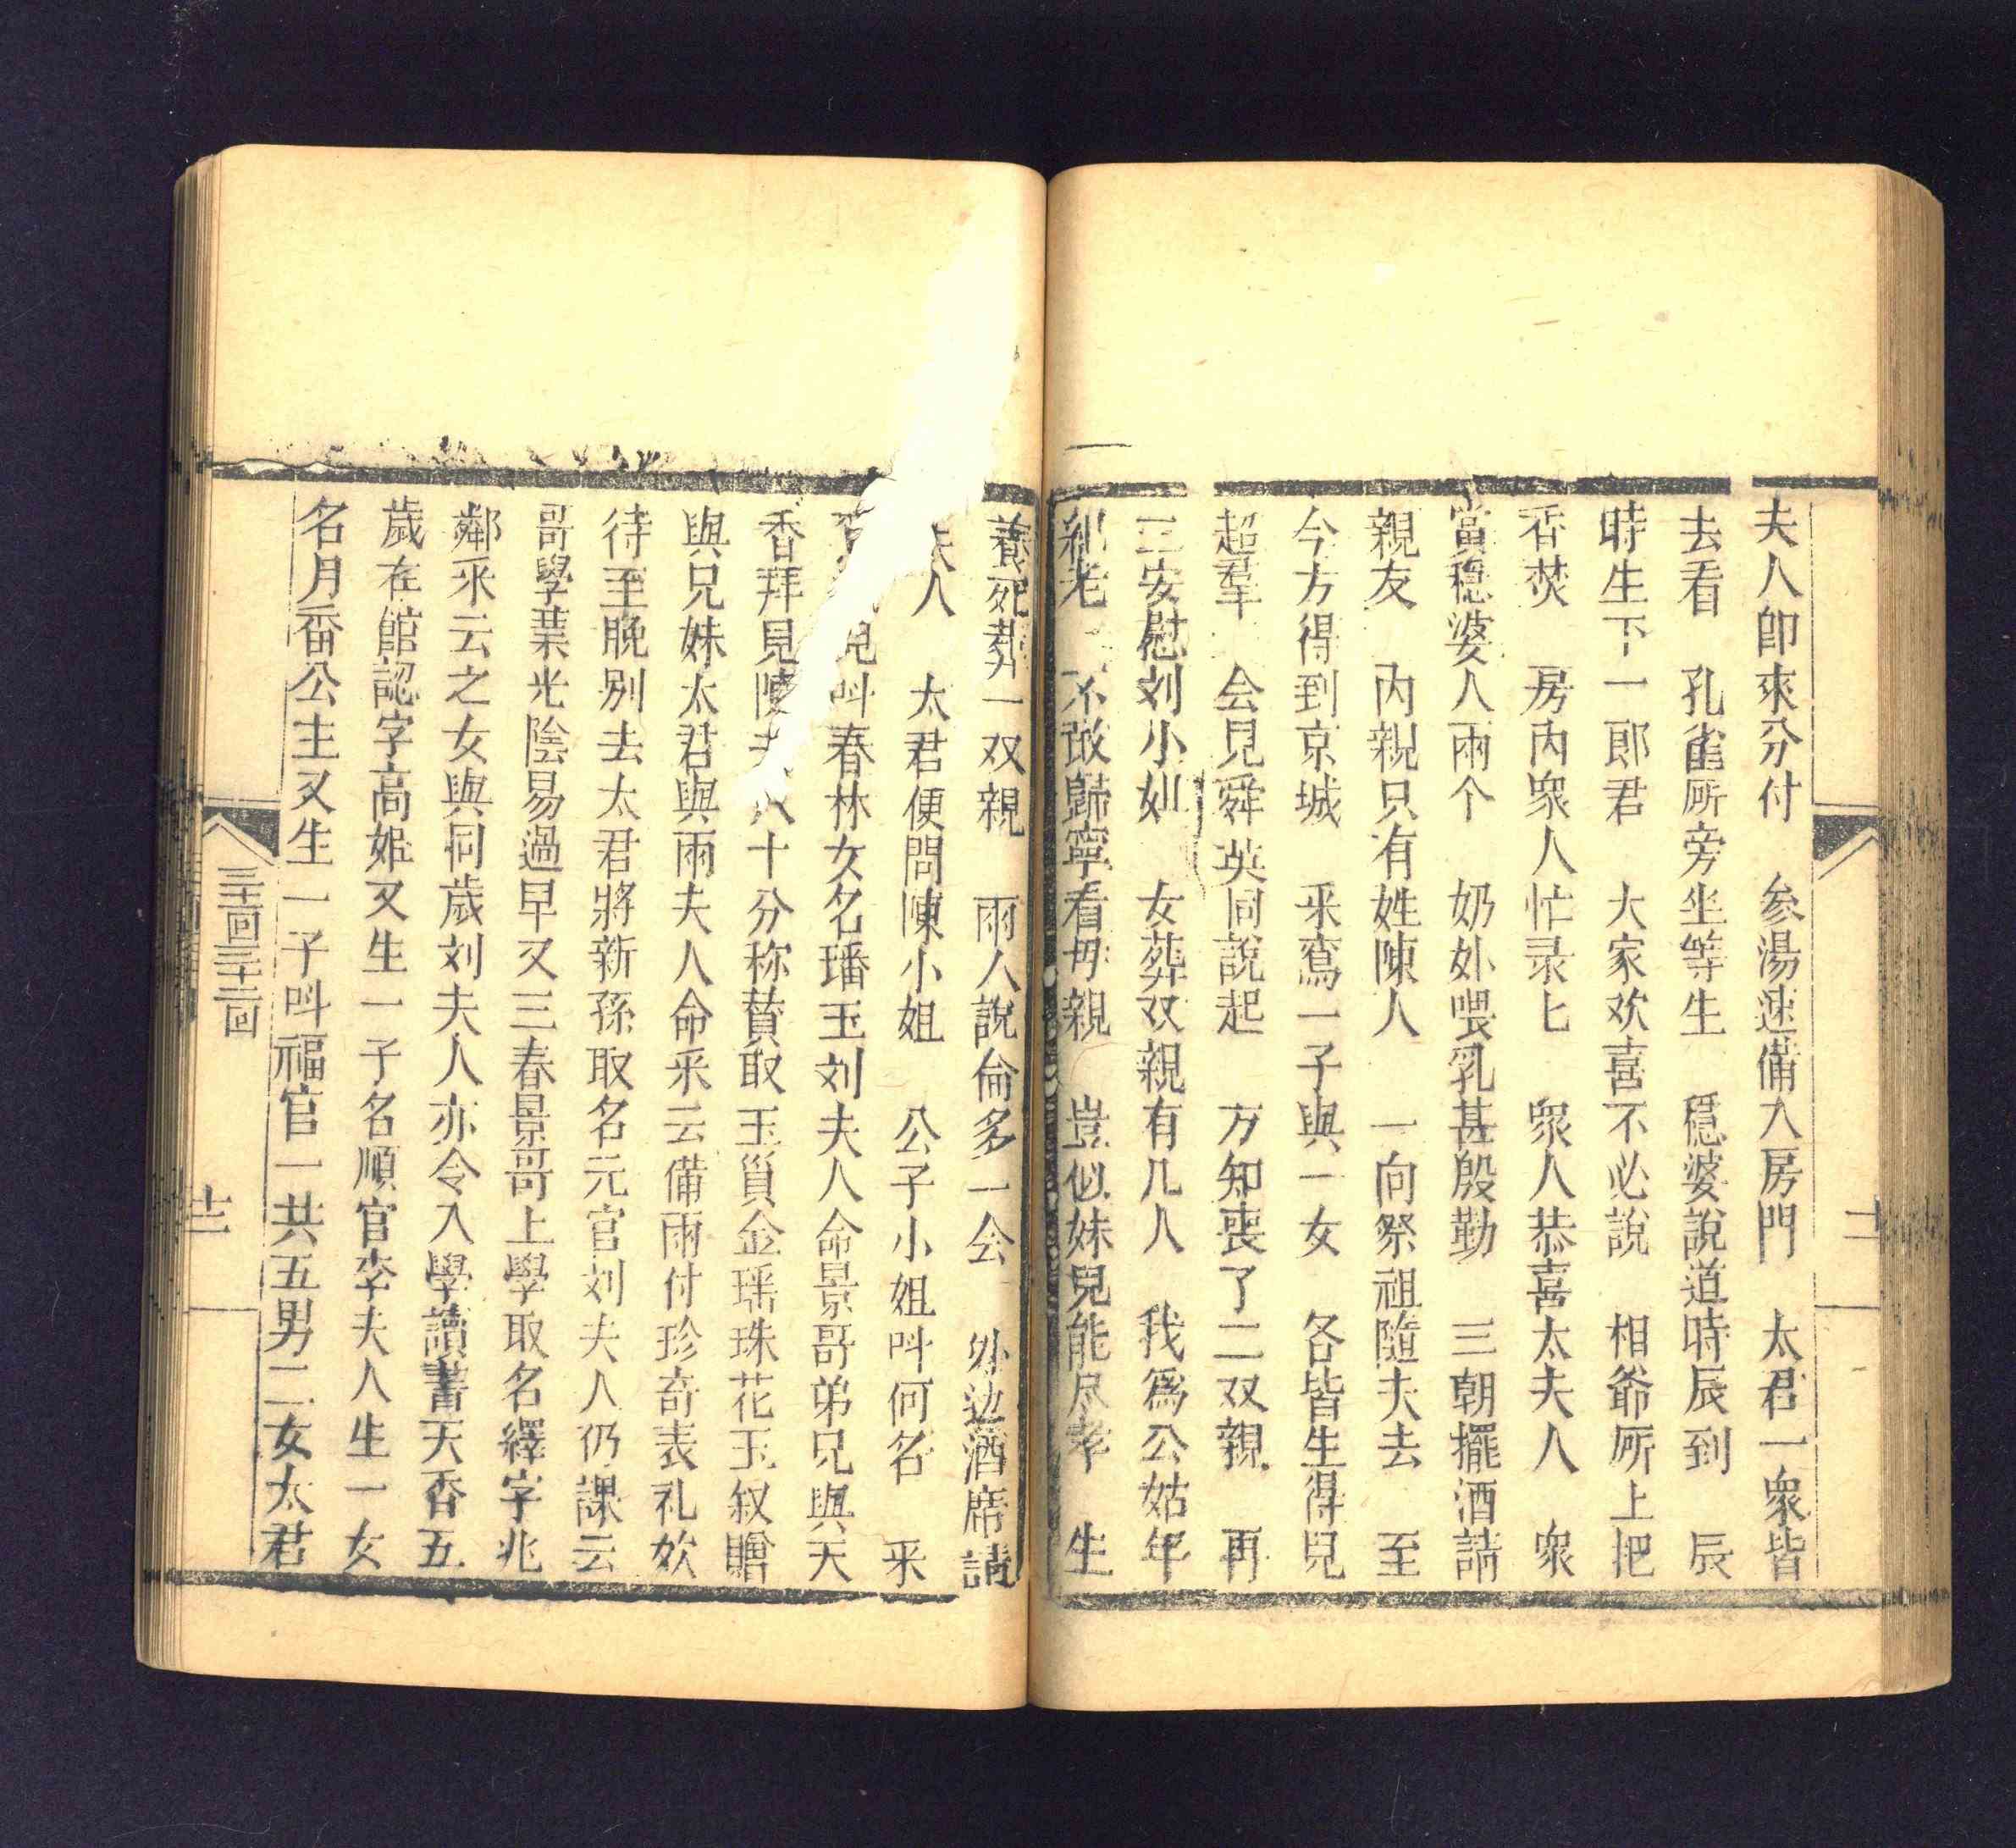 夫人即來分付　參湯速備入房門　太君一衆皆
去看　孔雀所旁坐等生　穩婆說道時辰到　辰
時生下一郎君　大家欢喜不必說　相爺所上把
香焚　房內衆人忙录匕　衆人恭喜太夫人　衆
當穏婆人兩个　奶奶喂乳甚殷勤　三朝擺酒請
親友　內親只有姓陳人　一向祭祖隨夫去　至
今方得到京城　釆鸞一子與一女　各皆生得兒
超羣　会見舜英同說起　方知喪了二双親　再
三安慰刘小如　女葬双親有几人　我爲公姑年
紀老　不敢歸寧看母親　豈似妹兒能尽孝　生
養死葬一双親　兩人說倫多一会　外边酒席請
夫人　太君便問陳小姐　公子小姐呌何名　釆
兒呌春林女名璠玉刘夫人命景哥弟兄與天
香拜見陳夫人十分称賛取玉貿金瑶珠花玉叙贈
與兄妹太君與兩夫人命釆云備兩付珍奇表礼欸
待至晚别去太君將新孫取名元官刘夫人仍課云
哥學業光陰易過早又三春景哥上學取名繹字兆
鄰釆云之女與同歲刘夫人亦令入學讀書天香五
歲在館認字高姬又生一子名順官李夫人生一女
名月香公主又生一子呌福官一共五男二女太君
三十一回三十二回
十二